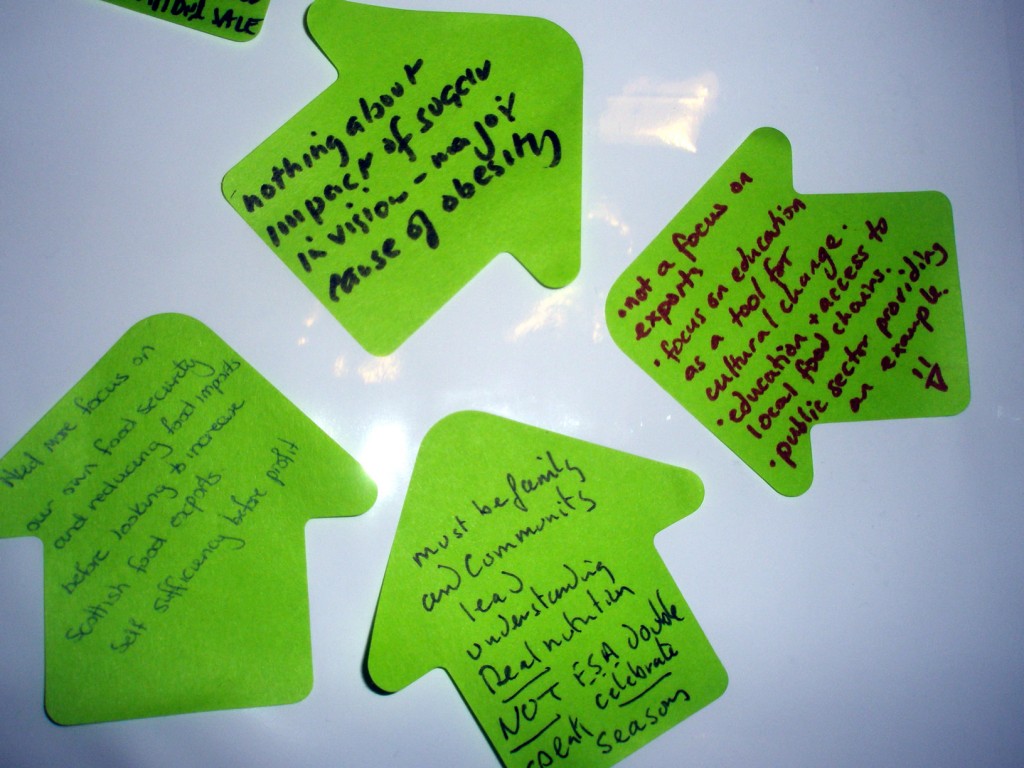 SALE
nothing about
impact of sugar
in vision - major
cause of obesity
• not a focus on
exports
• focus on education
as a tool for
cultural change.
• education + access to
local food chains.
• public sector providing
an example.
Need more focus on
our own food security
and reducing food imports
before looking to increase
Scottish food exports
Self sufficiency before profit
must be family
and Community
lead
understanding
Real nutrition
NOT F.S.A double
speak celebrate
seasons